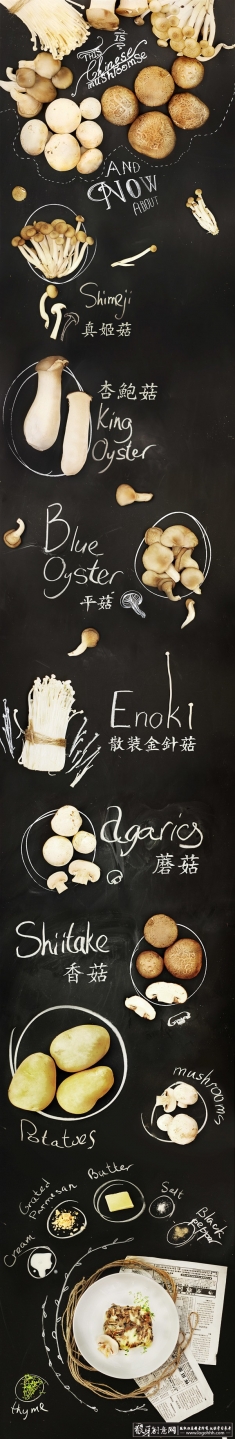 This
is
Chinese
mushroomse
AND
NOW
ABOUT
Shimeji
真姬菇
杏鲍菇
King
Oyster
Blue
Oyster
平菇
Enoki
散装金針菇
Agarics
蘑菇
Shiitake
香菇
Potatoes
mushrooms
Butter
Grated
Parmesan
Salt
Black
pepper
Cream
thyme